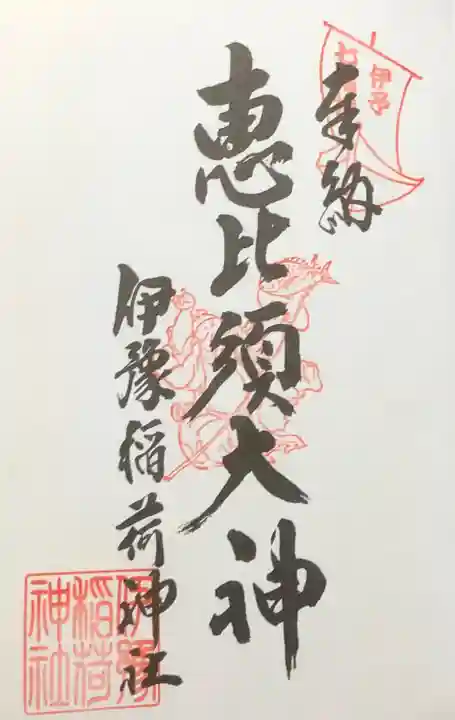 奉納
伊予
七
恵比須大神
伊豫稲荷神社
伊豫
稲荷
神社